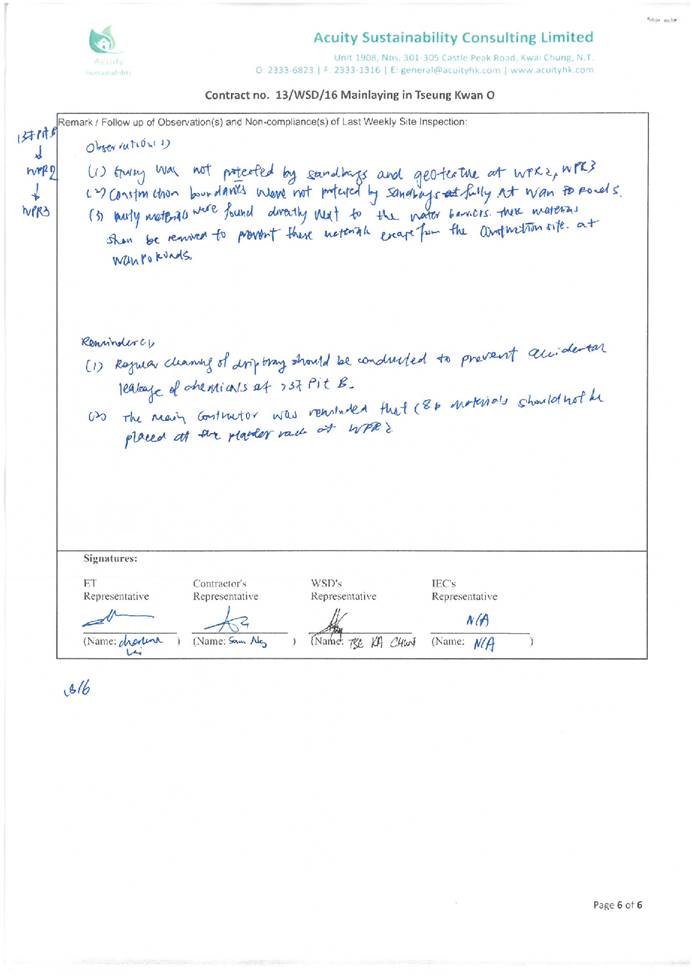 Acuity
Sustainability
Acuity Sustainability Consulting Limited
Unit 1908, Nos. 301-305 Castle Peak Road, Kwai Chung, N.T.
O: 2333-6823 | F: 2333-1316 | E: general@acuityhk.com | www.acuityhk.com
Contract no. 13/WSD/16 Mainlaying in Tseung Kwan O
Remark / Follow up of Observation(s) and Non-compliance(s) of Last Weekly Site Inspection:
WPR2
WPR3
Observation(s)
(1) was not protected by sandbags and geotextile at WPR2, WPR3
(2) Construction boundaries were not protected by sandbags fully at Wan Po Roads.
(3) materials were found directly next to the water barriers. these materials
shall be removed to prevent these materials escape from the construction site. at
Wan Po Roads.
Reminder(s)
(1) Regular cleaning of driptray should be conducted to prevent accidental
leakage of chemicals at Pit B.
(2) The main contractor was reminded that C&D materials should not be
placed at the at WPR2
Signatures:
ET Contractor's WSD's IEC's
Representative Representative Representative Representative
N/A
(Name: ) (Name: Sam Ng ) (Name: TSE KA CHUN (Name: N/A )
Page 6 of 6